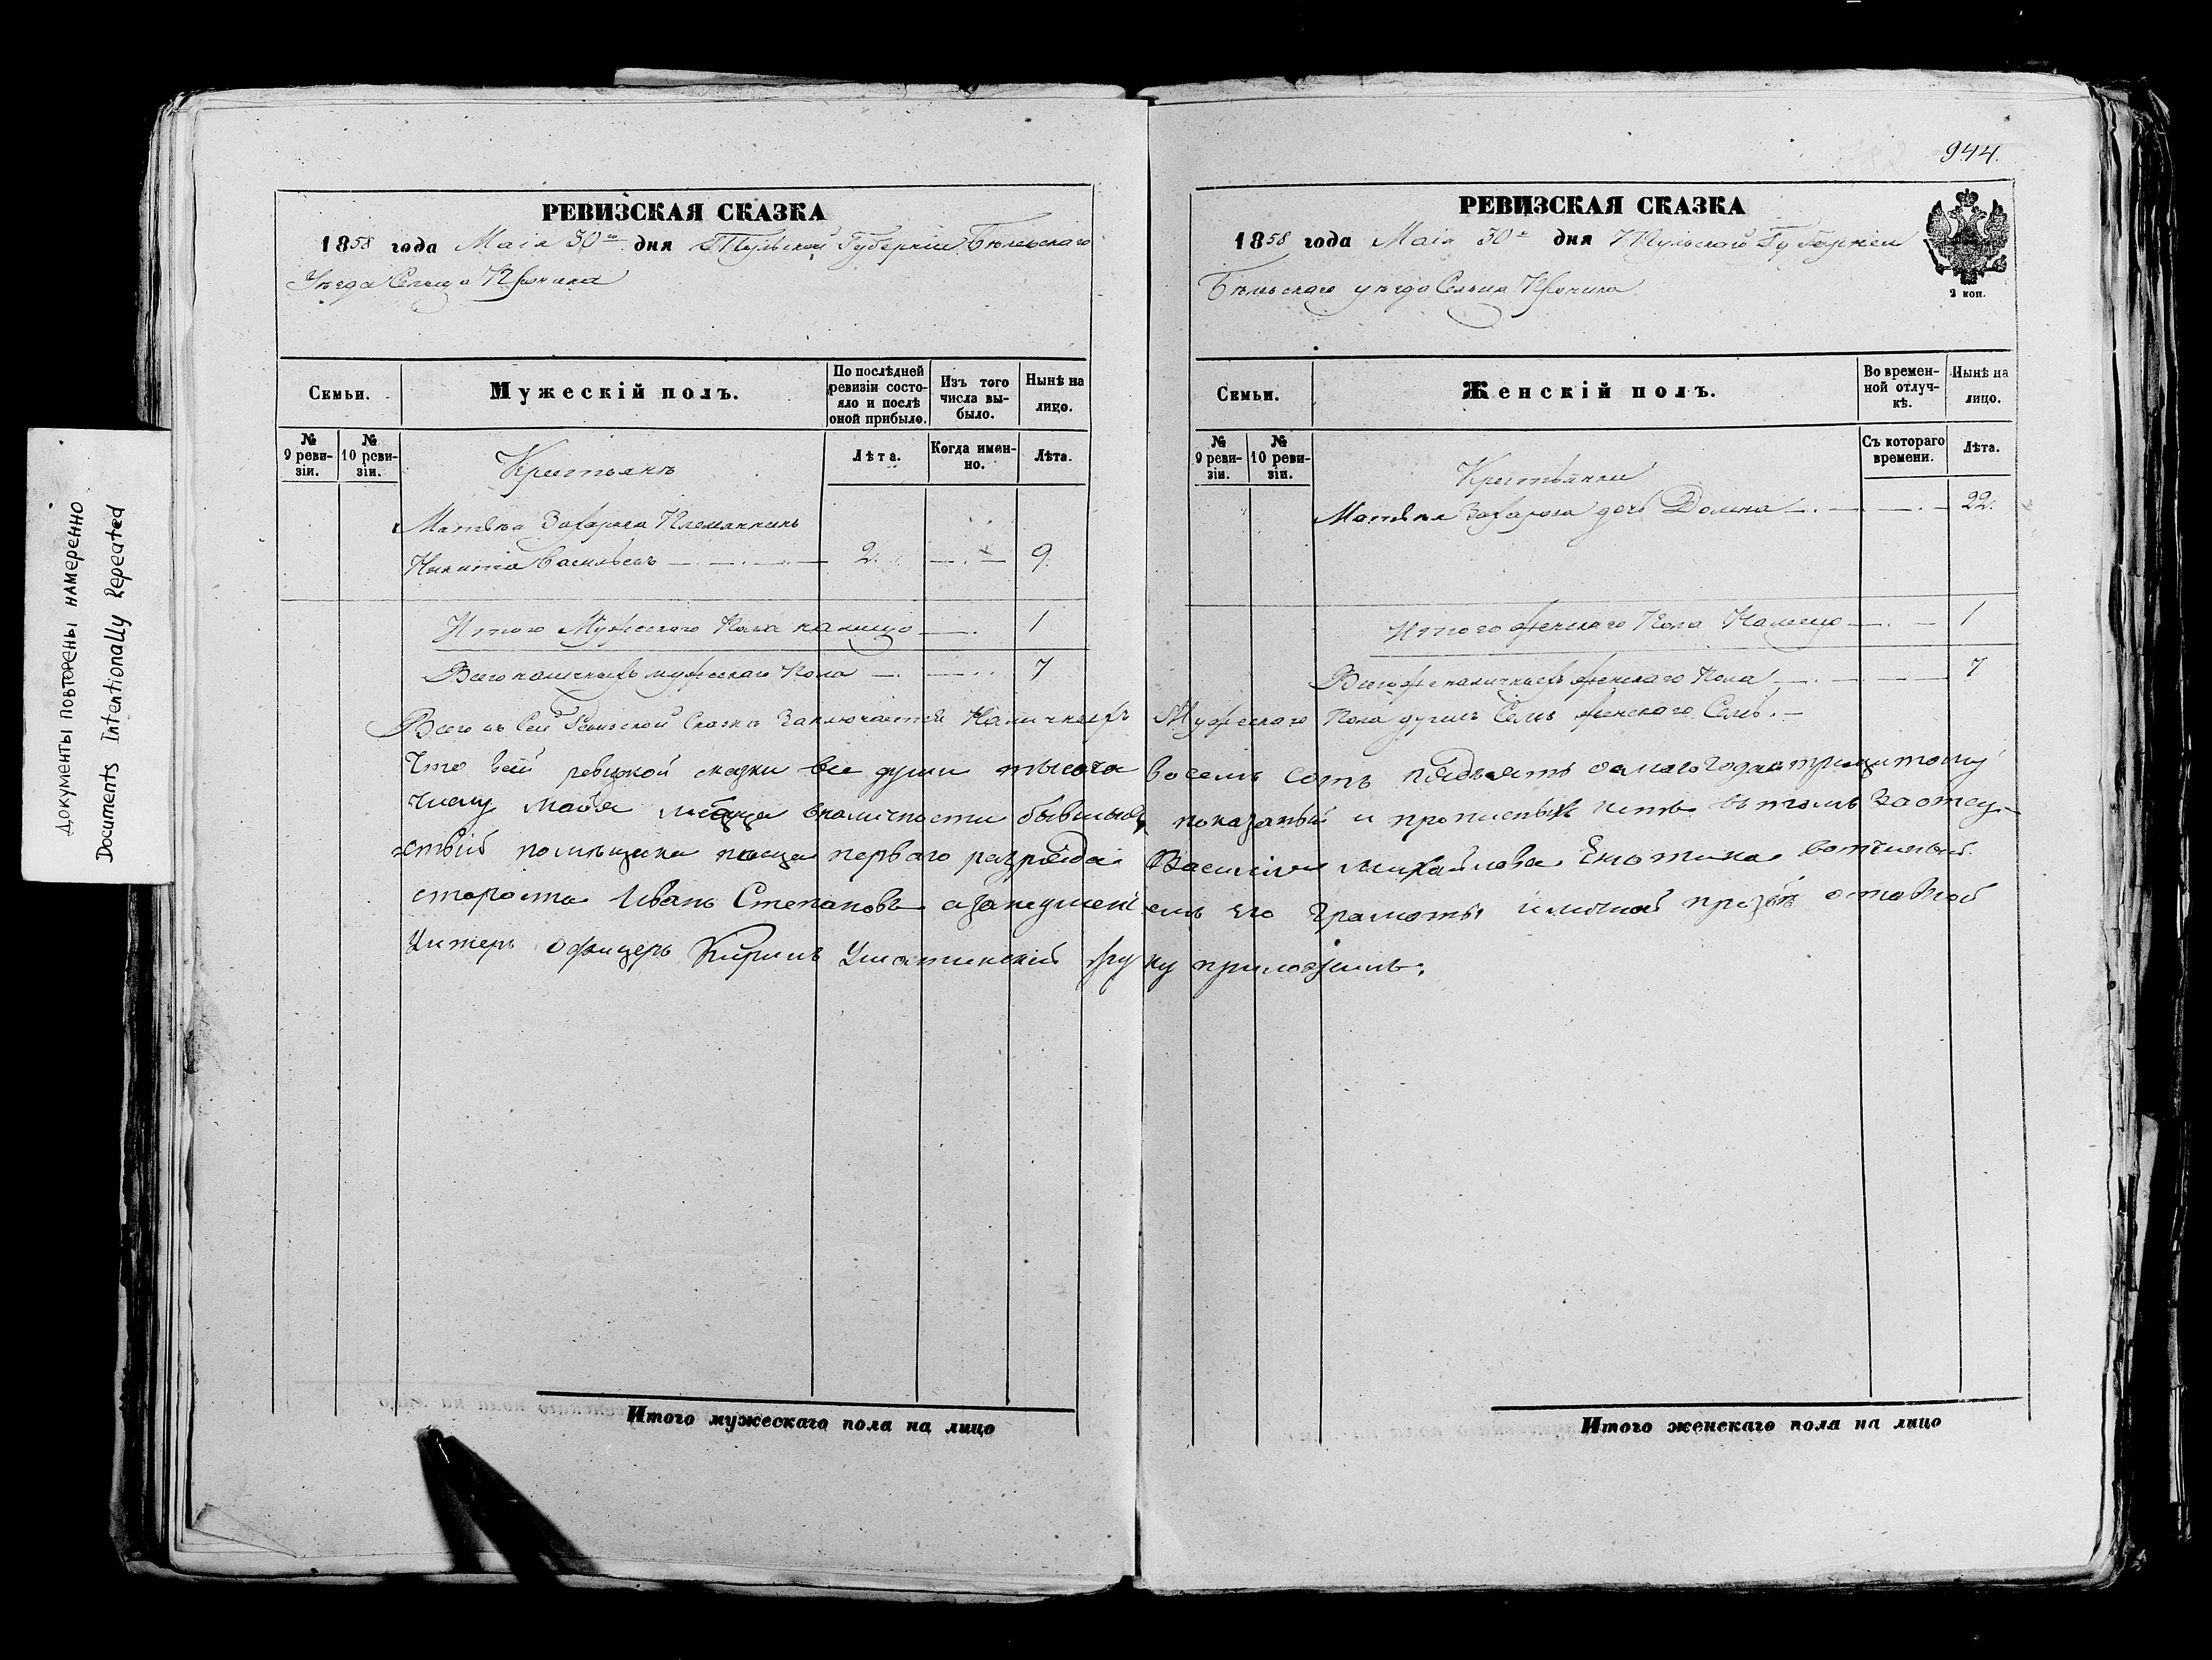 Документы повторены намеренно
Documents Intentionally Repeated
РЕВИЗСКАЯ СКАЗКА
1858 года Маія 30го дня Тульской Губерніи Бѣлевскаго
Уѣзда Сельца
Семьи.
Мужескій полъ.
По послѣдней ревизіи состояло и послѣ оной прибыло.
Изъ того числа выбыло.
Нынѣ на лицо.
№ 9 ревизіи.
№ 10 ревизіи.
Лѣта.
Когда именно.
Лѣта.
Крестьянъ
Матвѣя Захарова Племянникъ
Никита Васильевъ — 2. — 9.
Итого Мужескаго Пола налицо — 1
Всего наличныхъ мужескаго Пола — 7
944.
РЕВИЗСКАЯ СКАЗКА
2 коп.
1858 года Маія 30го дня Тульской Губерніи
Бѣлевскаго уѣзда Сельца
Семьи.
Женскій полъ.
Во временной отлучкѣ.
Нынѣ на лицо.
№ 9 ревизіи.
№ 10 ревизіи.
Съ котораго времени.
Лѣта.
Крестьянки
Матвѣя Захарова дочь — 22.
Итого женскаго Пола Налицо — 1
Всего же наличныхъ женскаго Пола — 7
Всего въ Сей Ревизской Сказкѣ Заключается Наличныхъ Мужескаго Пола душъ Семь женскаго Семь. —
Что всей ревизкой сказки все души тысяча восемь сотъ года тридцатому
числу майя месяца вналичности бывшыя показаный и прописныхъ нетъ втомъ Заотсу-
ствій помещика первого разряда Василия Михайлова вотчиный
староста Иванъ Степановъ его грамоты прозбе отавной
Унтеръ Офицеръ Кирилъ руку приложилъ.
Итого мужескаго пола на лицо
Итого женскаго пола на лицо